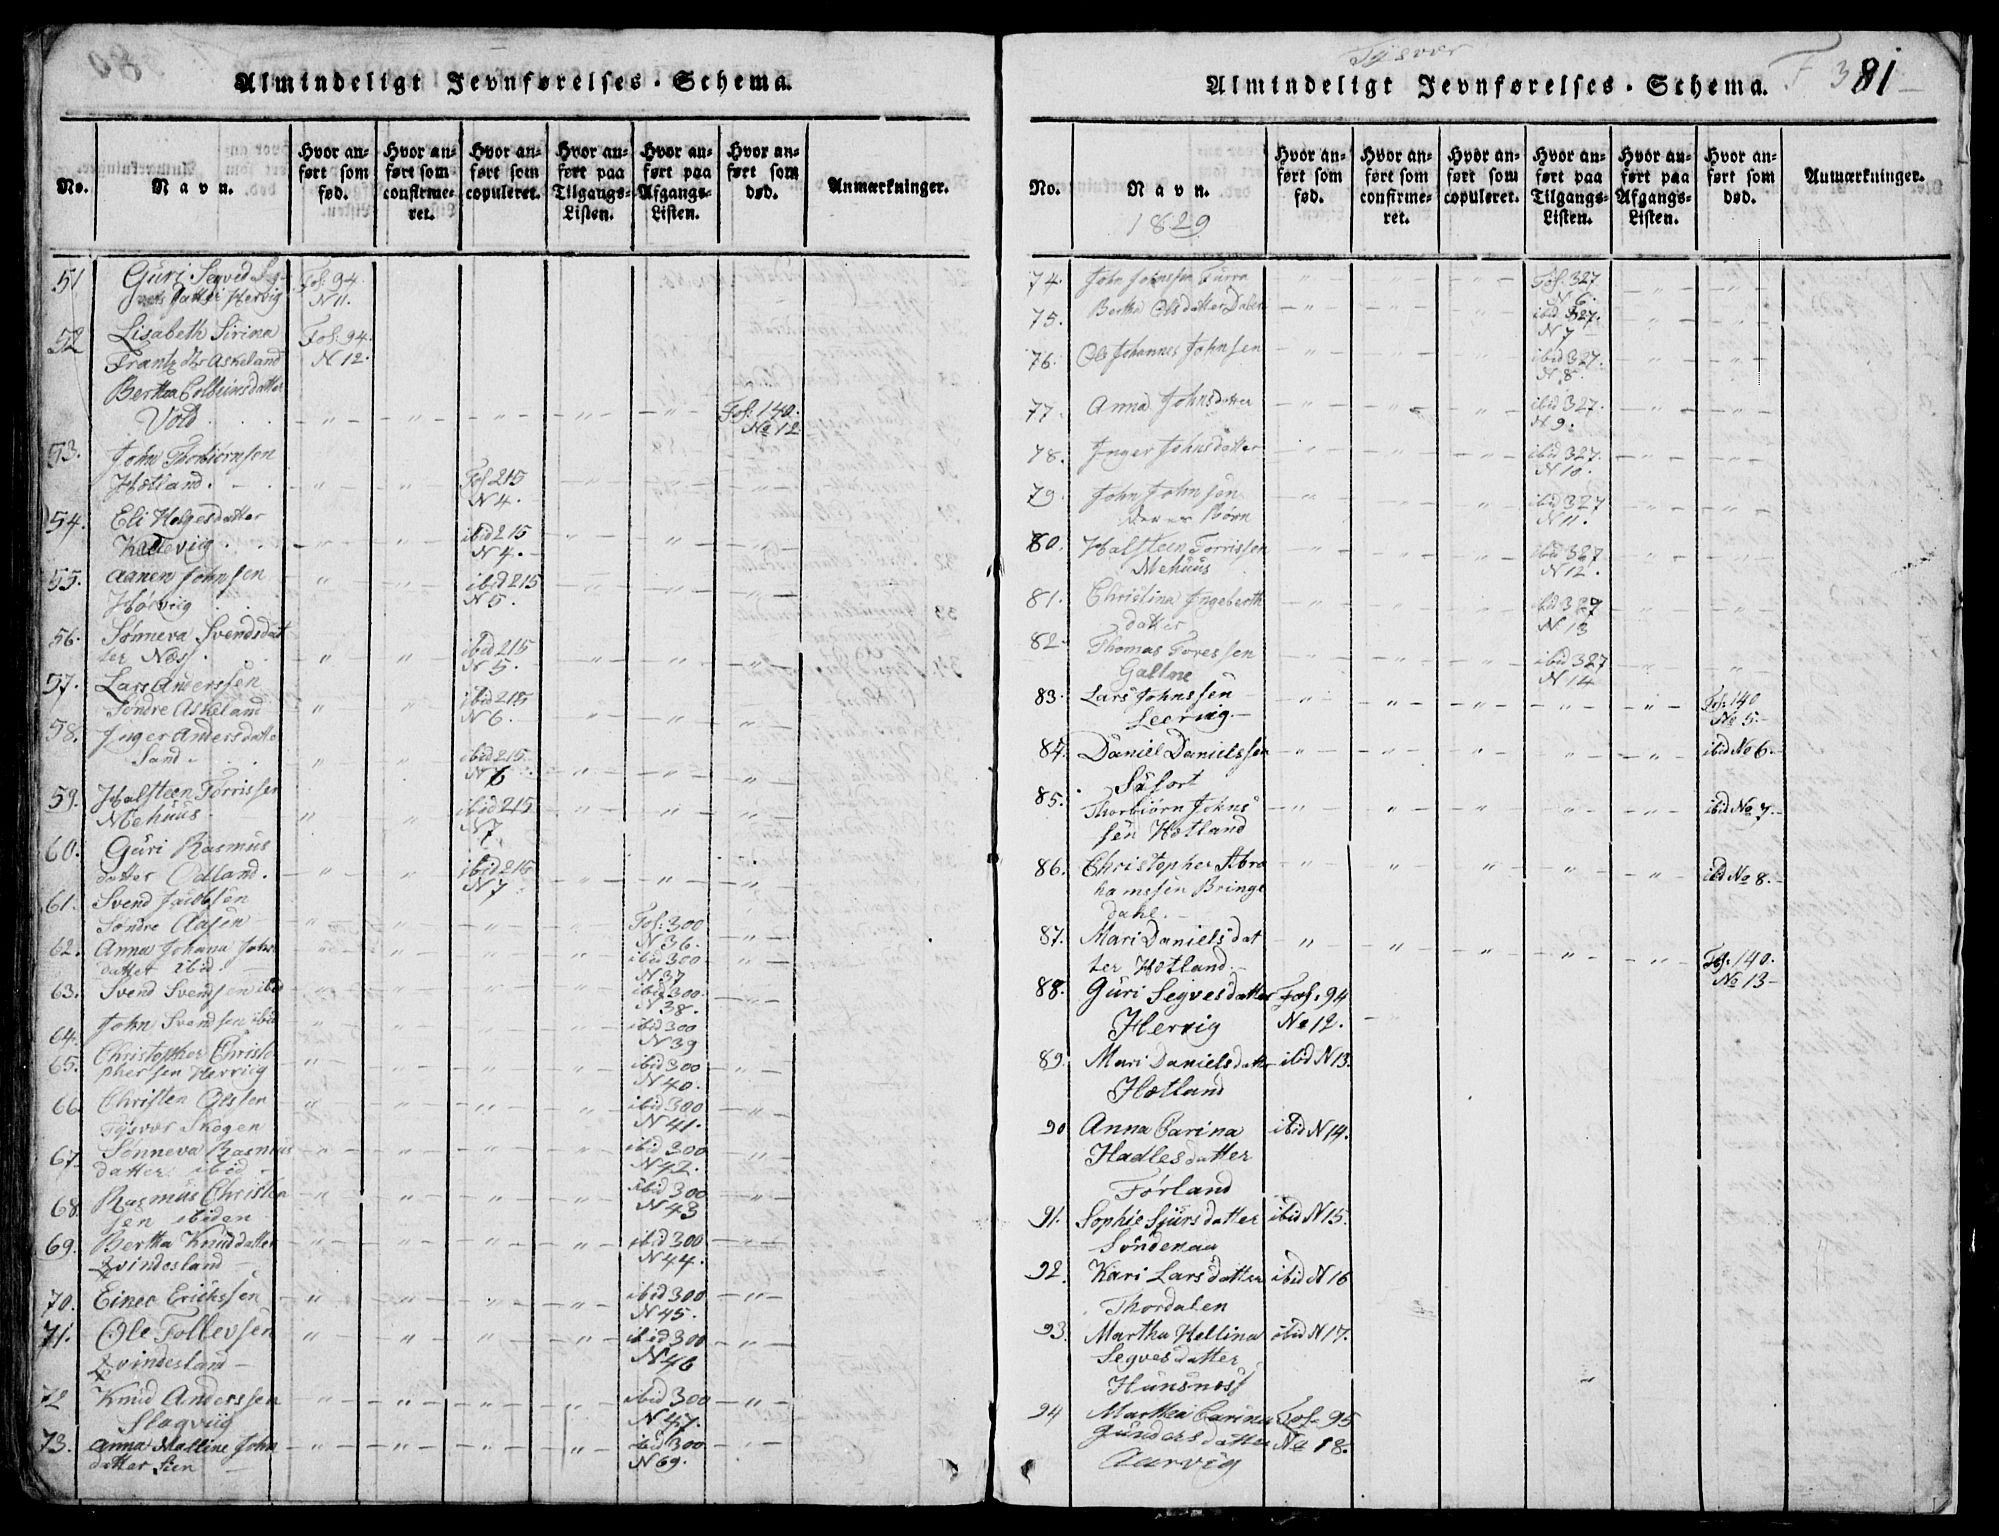 Almindeligt Jevnførelses-Schema.
No.
Navn.
Hvor anført som fød.
Hvor anført som confirmeret.
Hvor anført som copuleret.
Hvor anført paa Tilgangs-Listen.
Hvor anført paa Afgangs-Listen.
Hvor anført som død.
Anmærkninger.
51 Guri Segved
datter Hervig Fol: 94 N 11.
52 Lisabeth Sirina Fol: 94.
Frantz dtr Askeland N 12.
Bertha Colbeinsdatter
Vold Fol: 140. No 12
53. John Thorbiørnsen
Hetland. Fol 215 N 4.
54. Eli Helgesdatter
ibid 215 N 4.
55. Aanen Johnsen
Høieviig ibid 215 N 5.
56. Sønneva Svendsdat
ter Næs ibid 215 N 5.
57. Lars Anderssen
Søndre Askeland ibid 215 N 6.
58. Inger Andersdatter
Sand. ibid 215. N 6
59. Halsteen Torrissen
Mehuus. ibid 215 N 7
60. Guri Rasmus
datter Odland. ibid 215 N 7
61. Svend Jacobsen
Søndre Aasen Fol: 300 N 36.
62. Anna Johana Johns
datter ibid. ibid 300 N 37
63. Svend Svendsen ibid ibid 300. N 38.
64. John Svendsen ibid ibid 300 N 39
65. Christopher Christo
phersen Herviig ibid 300 N 40.
66 Christen Olssen
Tysvær Skogen ibid 300 N 41.
67. Sønneva Rasmus
datter ibid ibid 300 N 42.
68. Rasmus Christen
sen ibiden ibid 300 N 43
69. Bertha Knuddatter
Qvindesland ibid 300 N 44.
70. Einer Erichssen ibid 300 N 45.
71. Ole Tollevsen
Qvindesland ibid 300 N 46
72 Knud Anderssen
Slagviig ibid 300 N 47.
73. Anna Malline John
datter ibid 300 N 69.
Tysvær
Almindeligt Jevnførelses-Schema. F 381
No.
Navn.
1829
Hvor anført som fød.
Hvor anført som confirmeret.
Hvor anført som copuleret.
Hvor anført paa Tilgangs-Listen.
Hvor anført paa Afgangs-Listen.
Hvor anført som død.
Anmærkninger.
74. John Johnssen Fol: 327 N 6.
75. Bertha Olsdatter ibid 327. N 7
76. Ole Johannes Johnsen ibid 327. N 8.
77. Anna Johnsdatter ibid 327. N 9.
78. Inger Johnsdatter ibid 327. N 10.
79. John Johnsen
deres Børn ibid 327 N 11.
80. Halsteen Torrissen
Mehuus ibid 327 N 12.
81. Christina Ingeberth
datter ibid 327 N 13
82. Thomas Toressen
ibid 327 N 14
83. Lars Johnssen
Leervig. Fol: 140 No 5.
84. Daniel Danielssen
ibid No 6.
85. Thorbiørn Johns
sen Hetland ibid No 7.
86. Christopher Abra
hamssen Bringe
dahl. ibid No 8.
87. Mari Daniels dat
ter Hetland. Fol. 140. No 13
88. Guri Segvesdatter Fol: 94
Hervig No 12.
89. Mari Danielsdatter ibid N 13.
Hetland
90 Anna Carina ibid N 14.
Hadlesdatter
Førland
91. Sophie Sjursdatter ibid N 15.
Søndenaa
92. Kari Larsdatter ibid N 16
Thordalen
93. Martha Hellina ibid N 17.
Segvesdatter
Hunsnæss
94 Marthea Carina Fol: 95
Gundersdatter No 18.
Aarvig